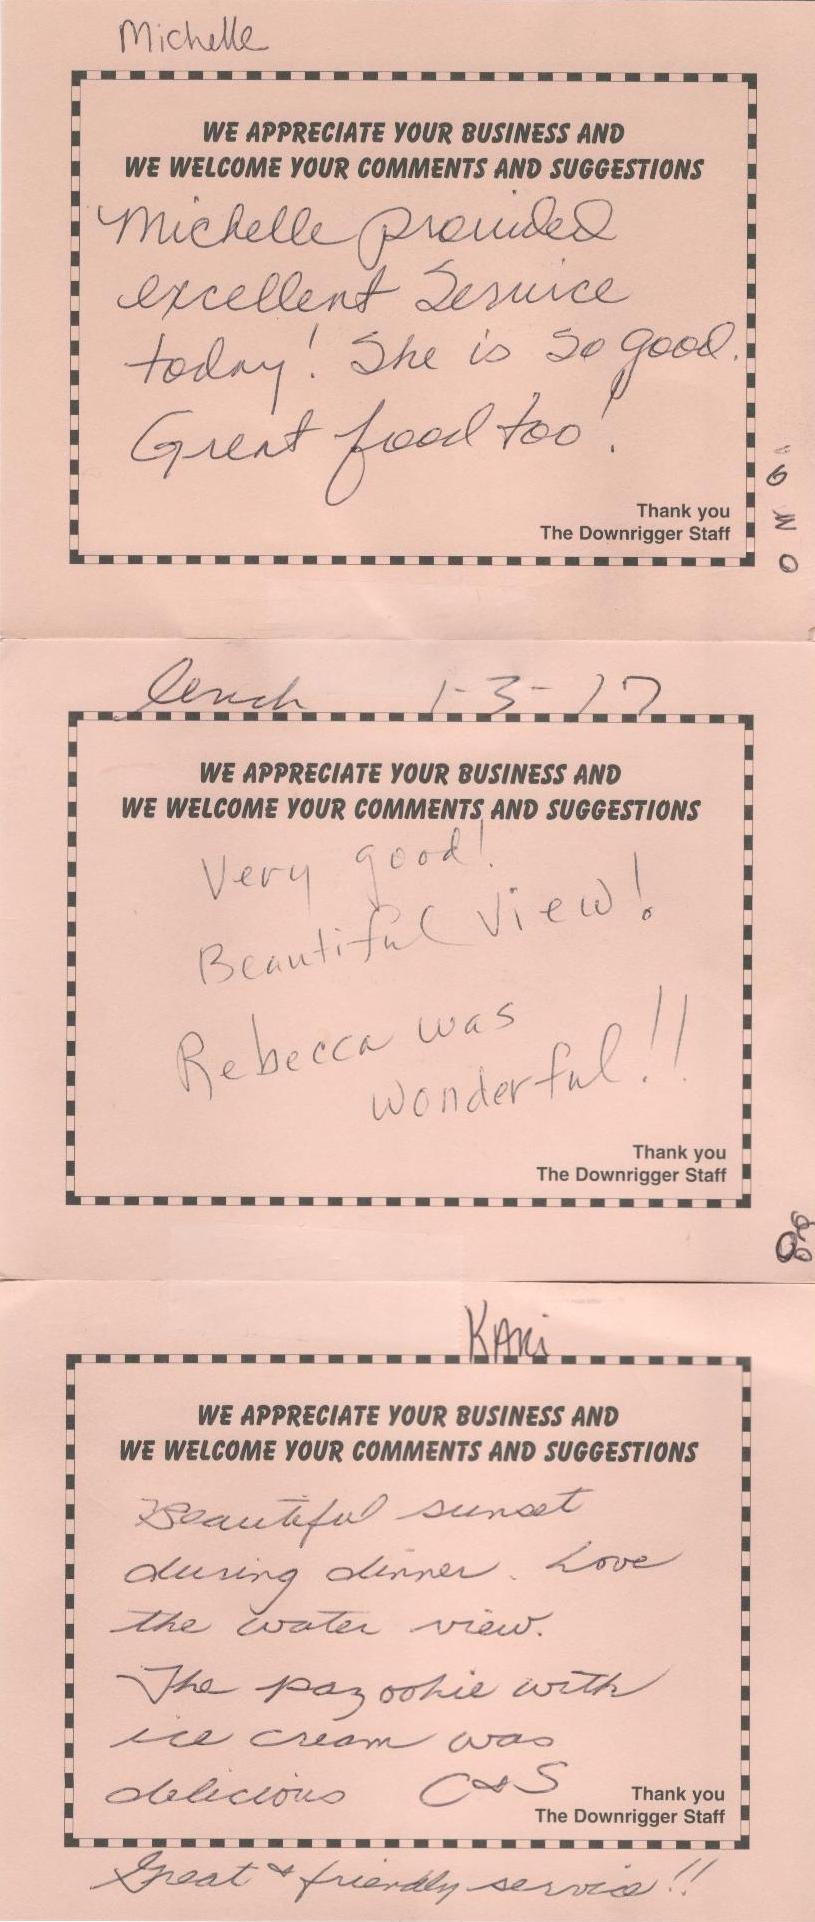 Michelle
WE APPRECIATE YOUR BUSINESS AND
WE WELCOME YOUR COMMENTS AND SUGGESTIONS
Michelle provided
excellent Service
today! She is so good.
Great food too!
Thank you
The Downrigger Staff
lunch 1-3-17
WE APPRECIATE YOUR BUSINESS AND
WE WELCOME YOUR COMMENTS AND SUGGESTIONS
Very good!
Beautiful View!
Rebecca was
wonderful!!
Thank you
The Downrigger Staff
KARi
WE APPRECIATE YOUR BUSINESS AND
WE WELCOME YOUR COMMENTS AND SUGGESTIONS
Beautiful sunset
during dinner. Love
the water view.
The pazookie with
ice cream was
delicious C & S
Thank you
The Downrigger Staff
Great & friendly service!!